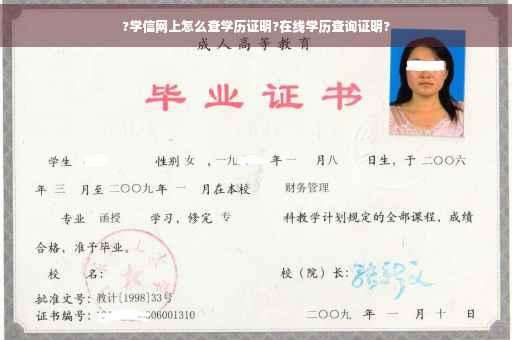 ?学信网上怎么查学历证明?在线学历查询证明?
成人高等教育
毕业证书
学生 性别 女 ，一九 年 一 月八 日生，于 二〇〇六
年 三 月至 二〇〇九年 一 月在本校 财务管理
专业 函授 学习，修完 专 科教学计划规定的全部课程，成绩
合格，准予毕业。
校 名： 校（院）长：
批准文号：教计[1998]33号
证书编号： 06001310 二〇〇九 年 一 月 十 日